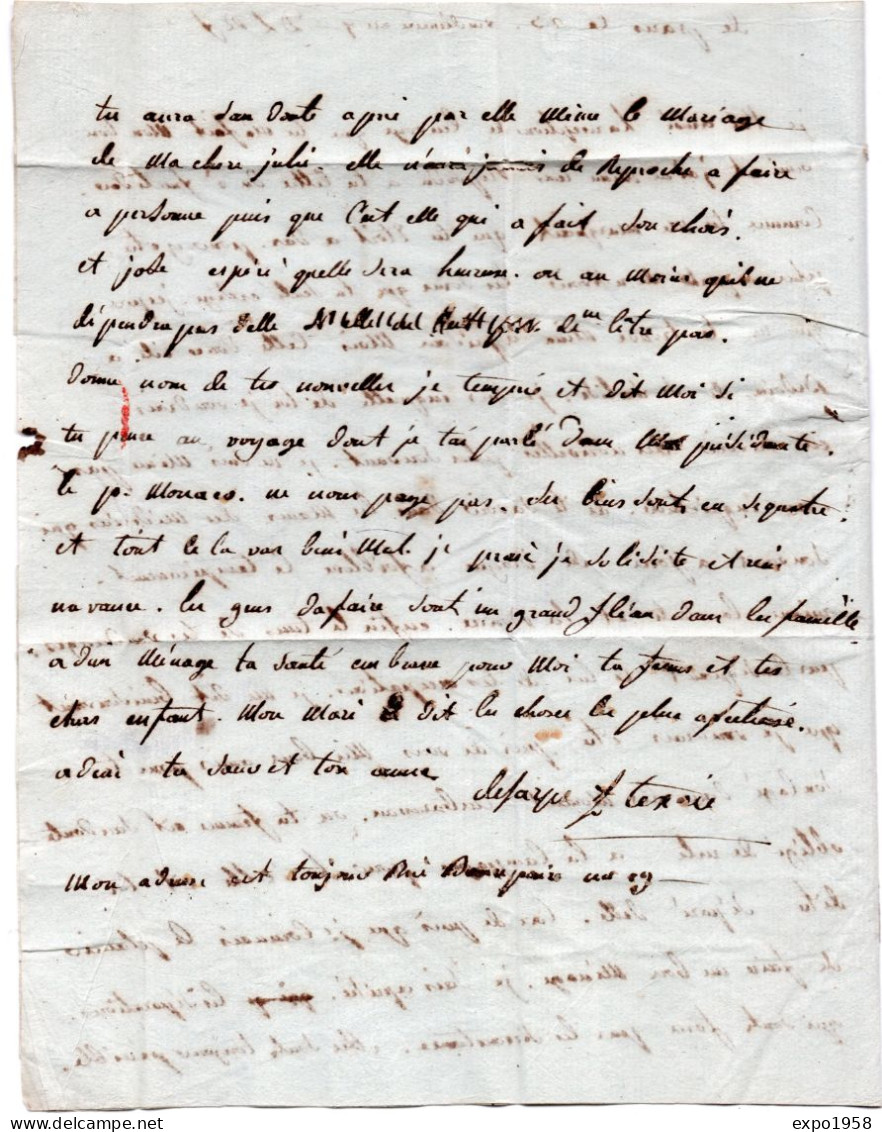 tu aura san doute apris par elle Même le Mariage
de Ma chere julie. elle de Reproché a faire
a personne puis que C'est elle qui a fait son chois.
et jose espéré quelle sera heureuse. ou au Moins qu'il ne
dépendra pas delle de ne lêtre pas.
donne nous de tes nouvelles je tempris et dit Moi si
tu pense au voyage dont je tai parlé dans Ma présédante.
le p. Monaco. ne nous paye pas. ses biens sonts en sequatre.
et tout ce la var biens Mal. je praisé je solisite et riens
navance. les gens dafaire sont un grand fléau dans les famille
adieu Ménage ta santé embrasse pour Moi ta femme et tes
chers enfant. Mon Mari dit les choses les plus afectueuse.
adieu ta soeur et ton amie
Mon adresse est toujours Rue Beaurepaire no 29
expo1958